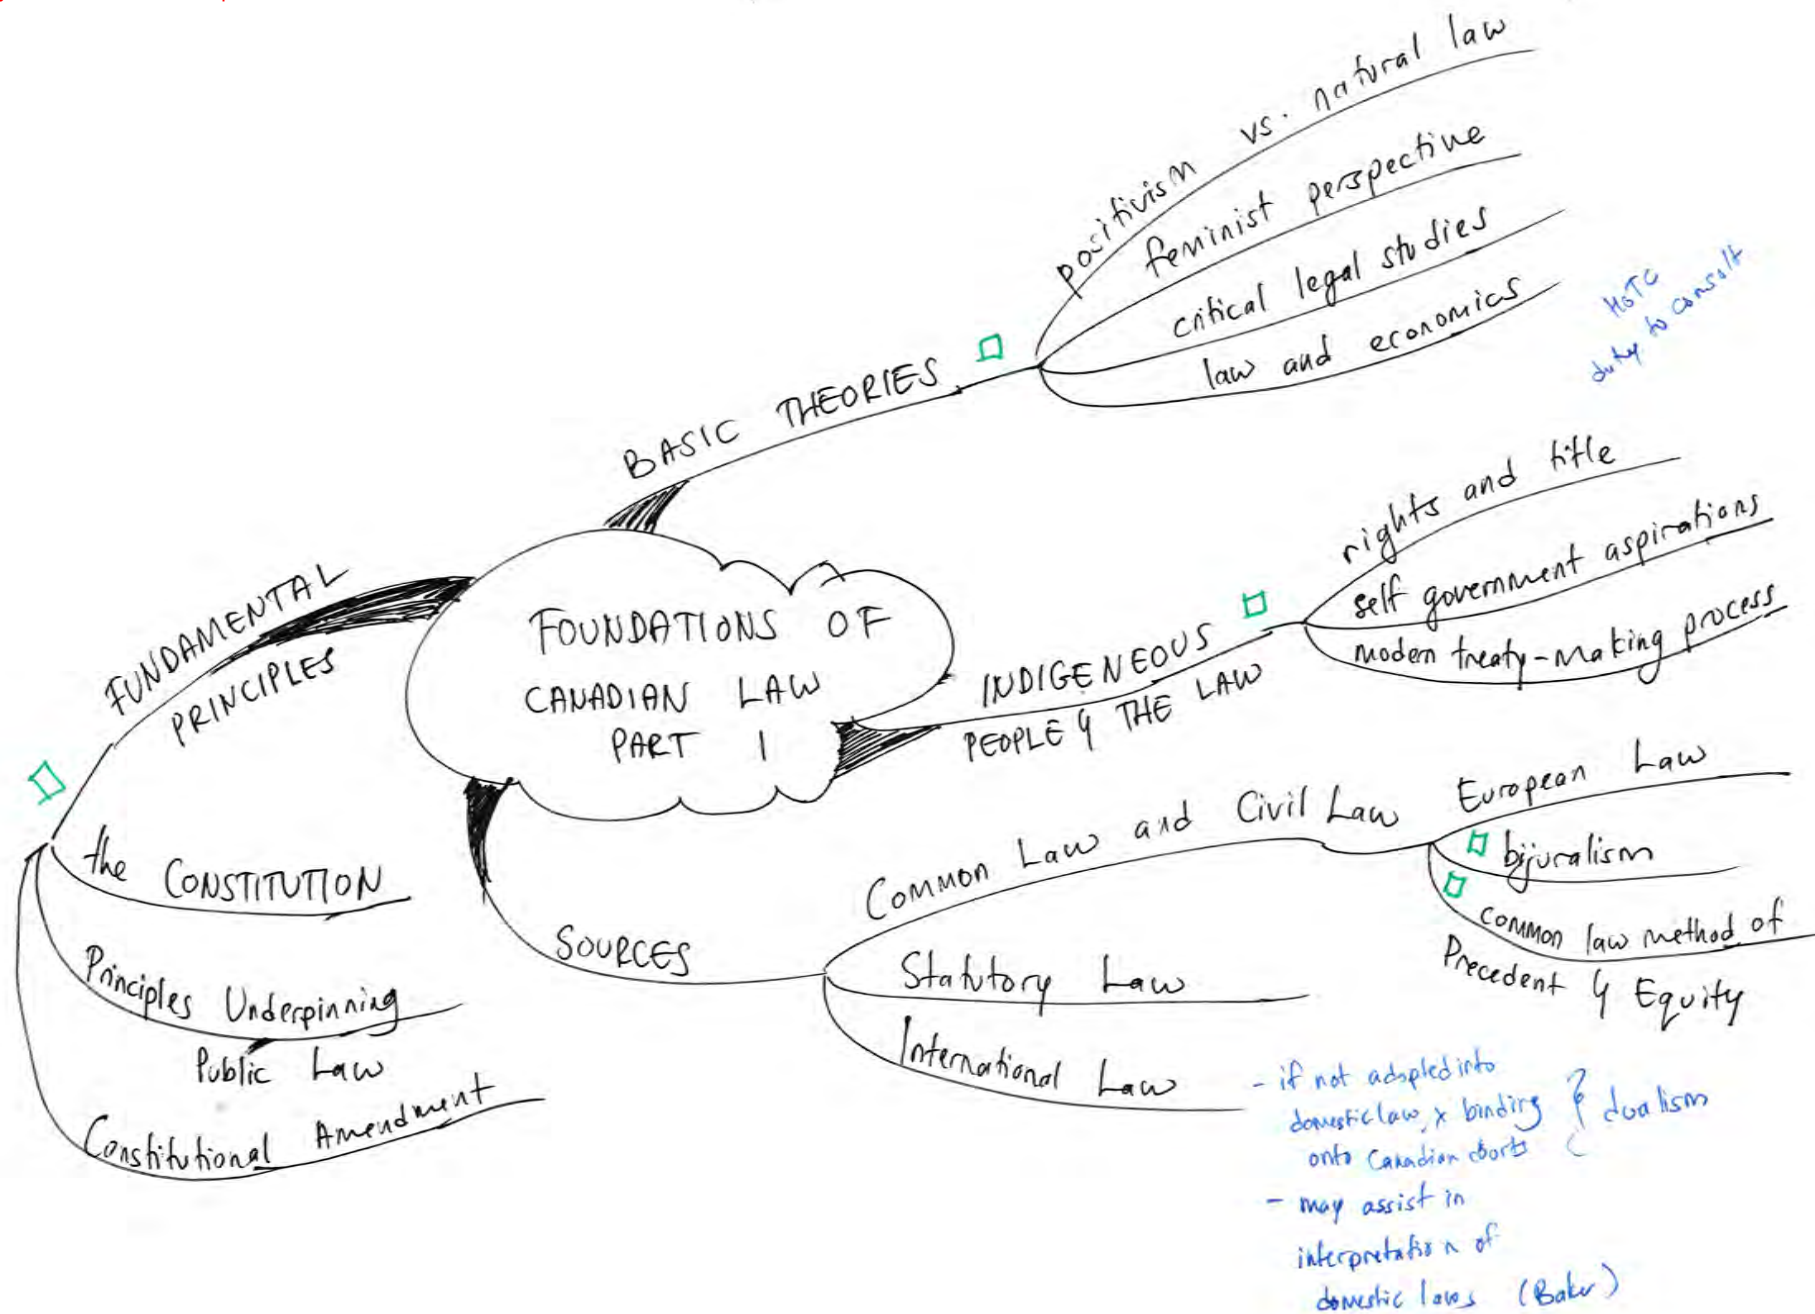 FOUNDATIONS OF
CANADIAN LAW
PART 1
BASIC THEORIES
positivism vs. natural law
feminist perspective
critical legal studies
law and economics
HoTC
duty to consult
INDIGENEOUS
PEOPLE & THE LAW
rights and title
self government aspirations
modern treaty-making process
SOURCES
Common Law and Civil Law
European Law
bijuralism
common law method of
Precedent & Equity
Statutory Law
International Law
- if not adopted into
domestic law, x binding
onto Canadian courts
dualism
- may assist in
interpretation of
domestic laws (Baker)
FUNDAMENTAL
PRINCIPLES
the CONSTITUTION
Principles Underpinning
Public Law
Constitutional Amendment